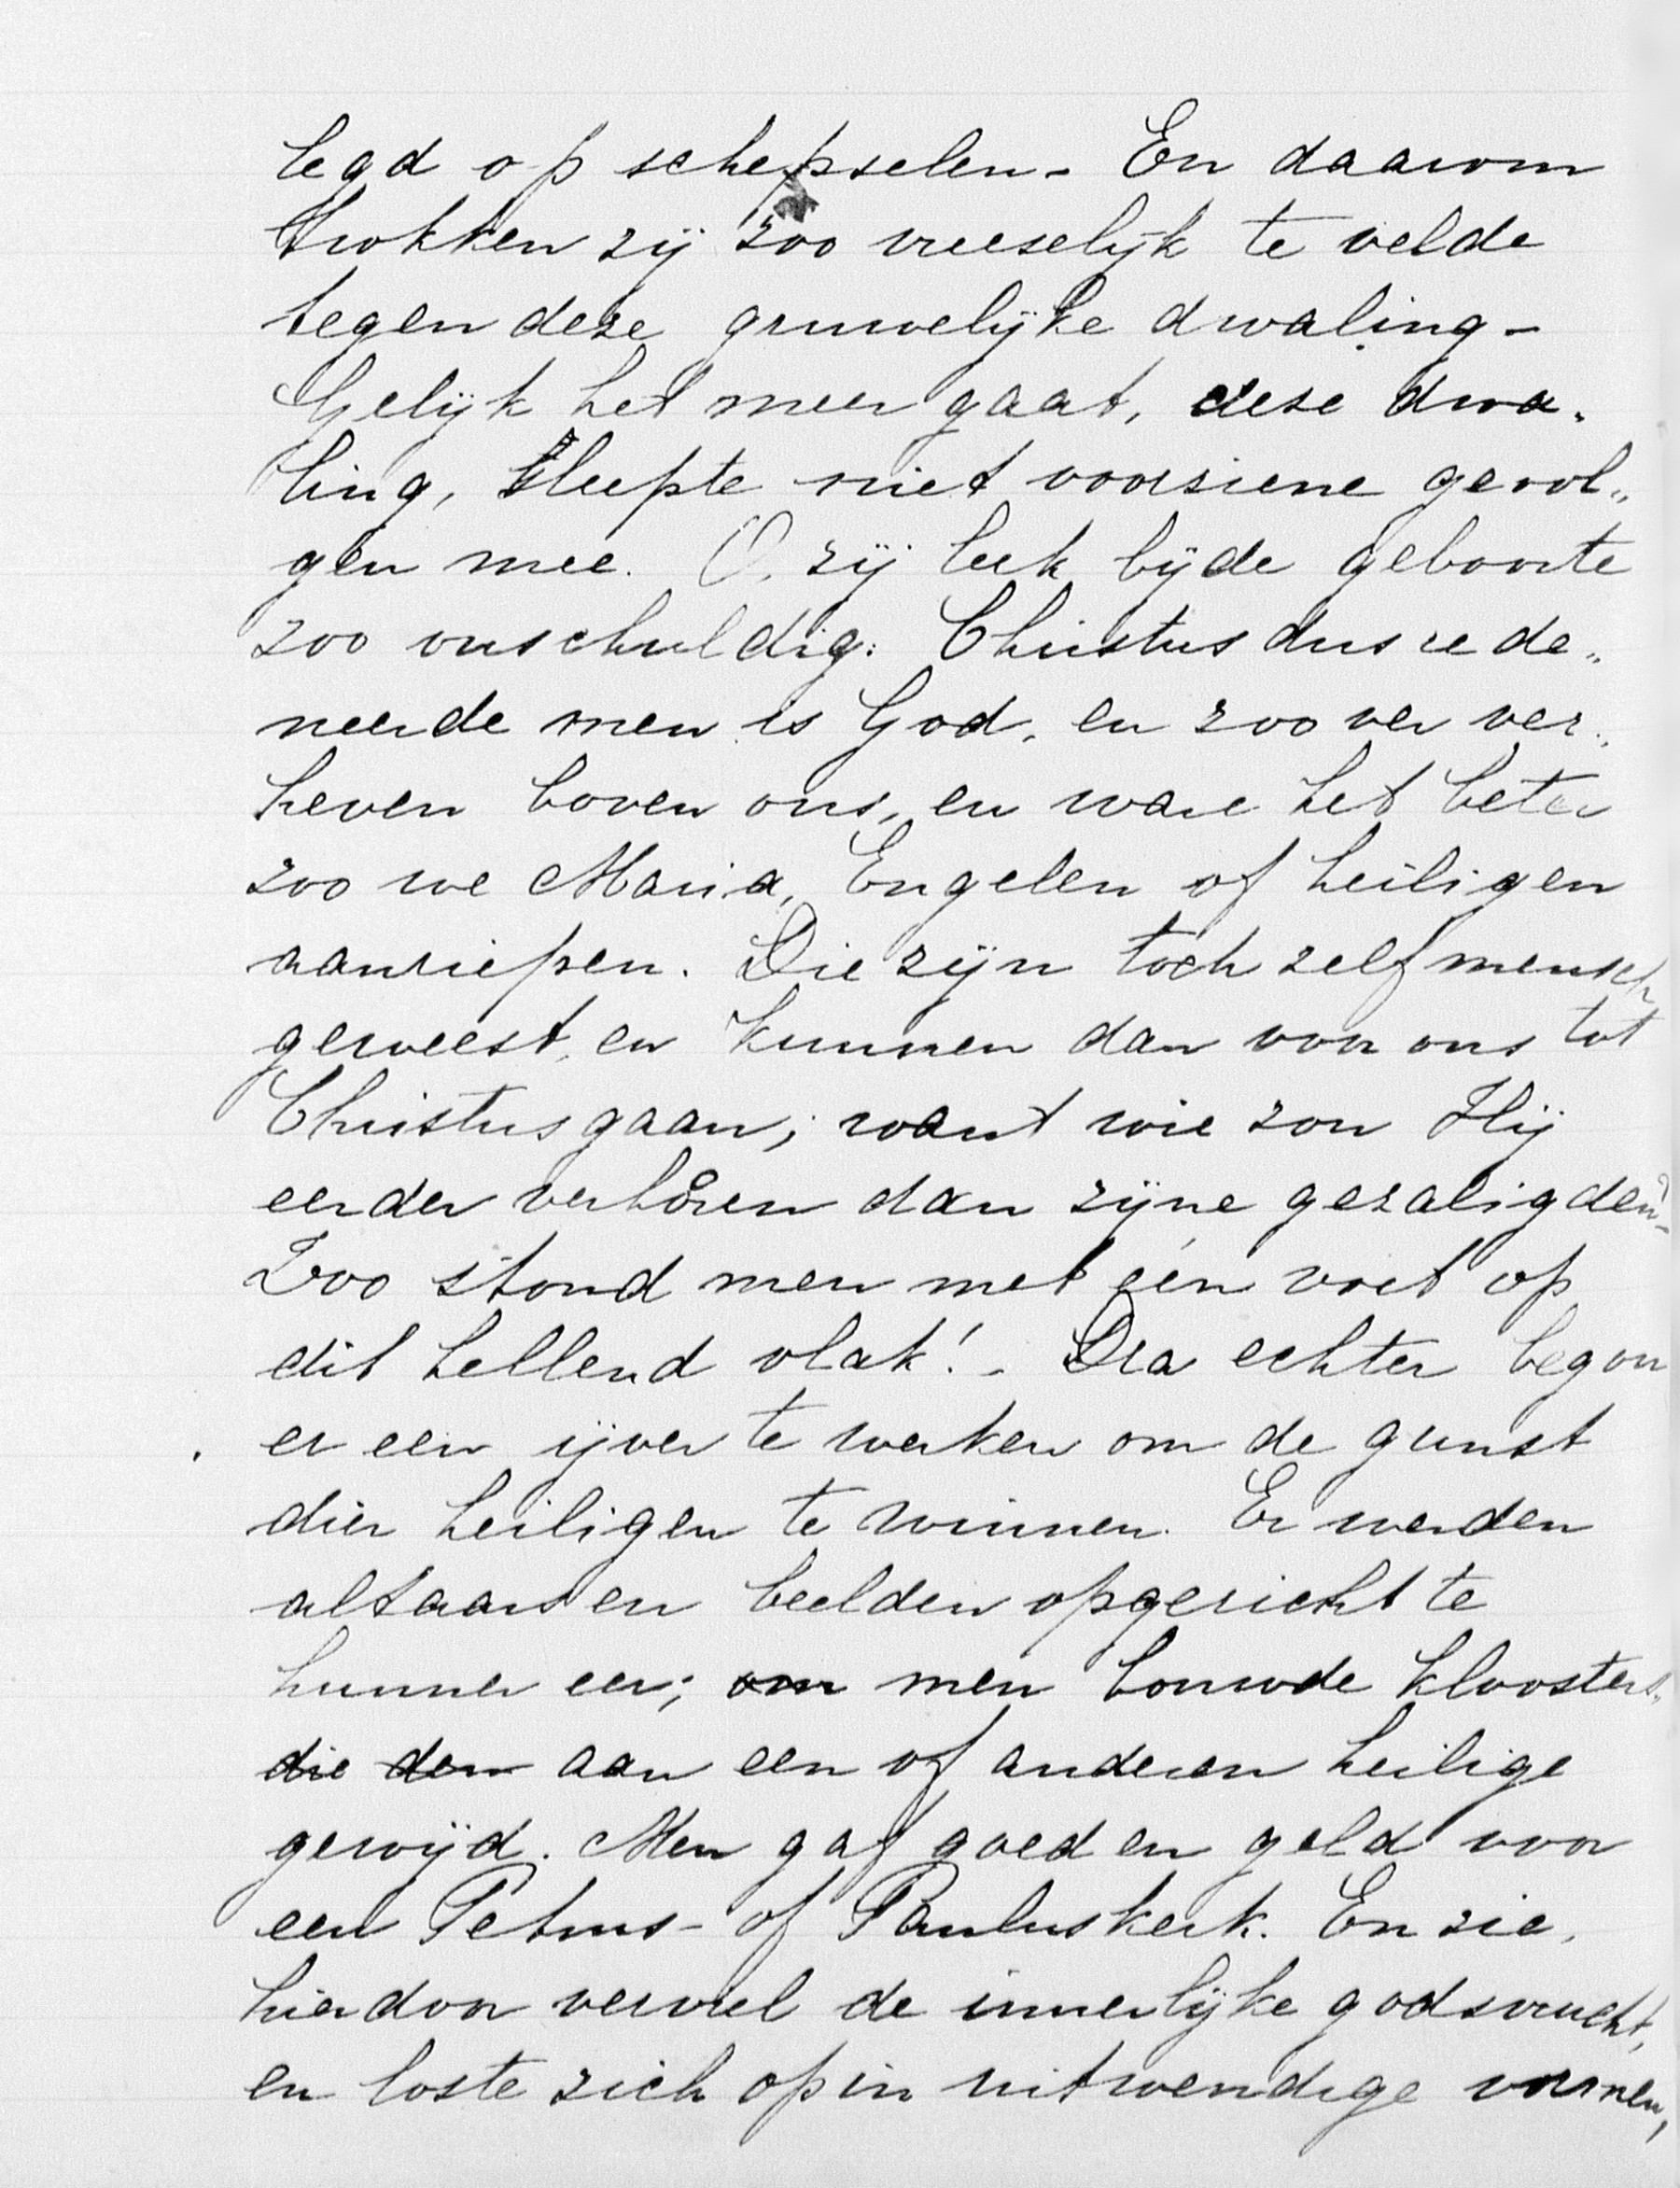 legd op schepselen - En daarom
trokken zij zoo vreeselijk te velde
tegen deze gruwelijke dwaling -
Gelijk het meer gaat, deze dwa„
ling, sleepte niet voorziene gevol„
gen mee. O, zij leek bij de geboorte
zoo onschuldig: Christus dus rede„
neerde men is God, en zoo ver ver„
heven boven ons, en ware het beter
zoo we Maria, Engelen of heiligen
aanriepen. Die zijn toch zelf mensch
geweest, en kunnen dan voor ons tot
Christus gaan; want wie zou Hij
eerder verhoren dan zijne gezaligden? -
Zoo stond men met één voet op
dit hellend vlak! - Dra echter begon
er een ijver te werken om de gunst
dier heiligen te winnen. Er werden
altaars en beelden opgericht te
hunner eer; om men bouwde kloosters„
die den aan een of anderen heilige
gewijd. Men gaf goed en geld voor
een Petrus- of Pauluskerk. En zie,
hierdoor verviel de innerlijke godsvrucht,
en loste zich op in uitwendige vormen,